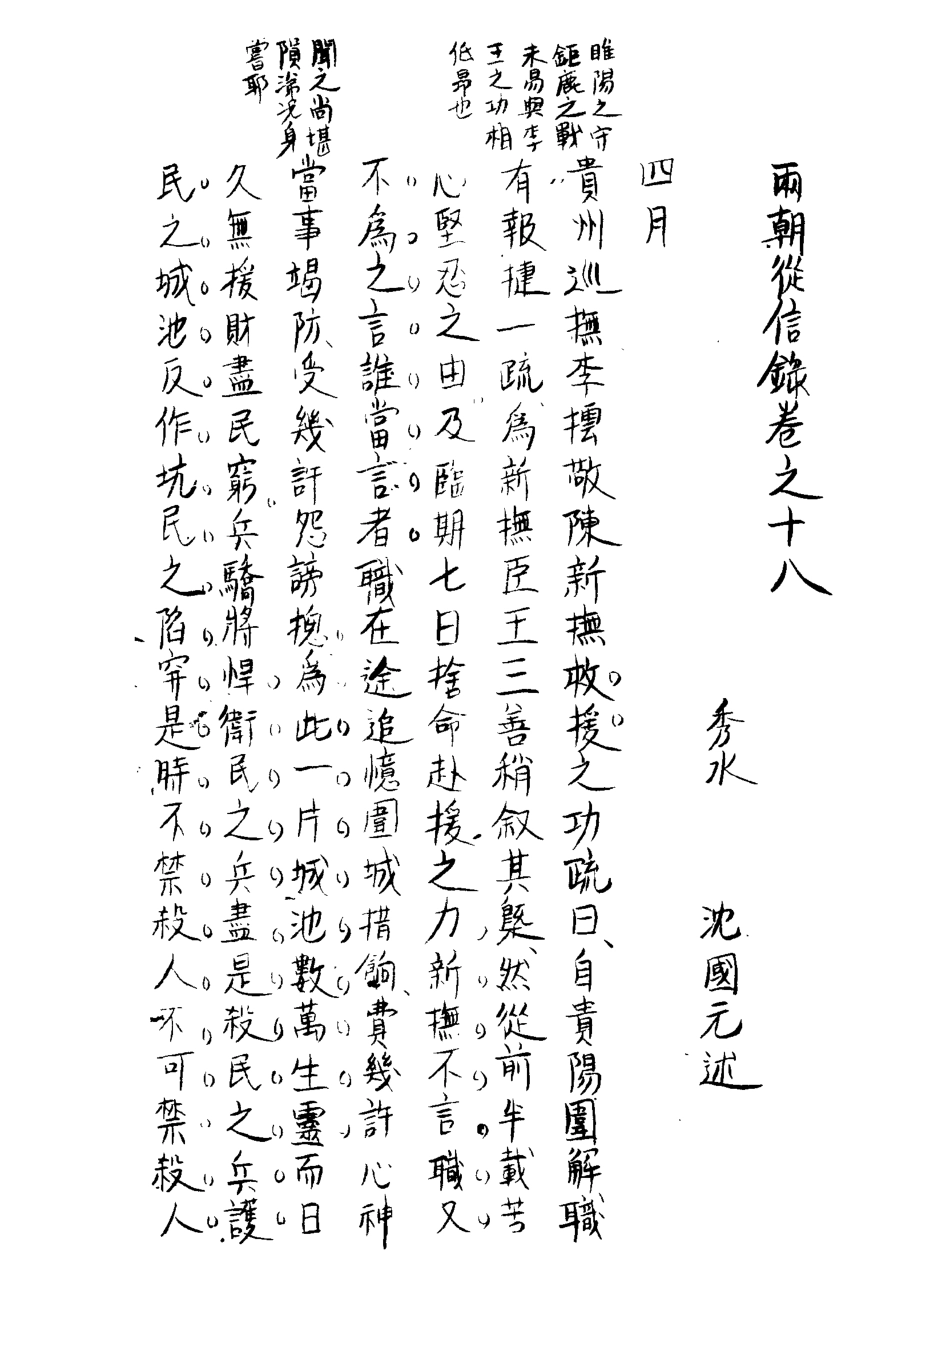 兩朝從信錄卷之十八
秀水 沈國元述
四月
睢陽之守
鉅鹿之戰
未易與李
王之功相
低昂也
貴州巡撫李橒敬陳新撫救援之功疏曰、自貴陽圍解職
有報捷一疏、為新撫臣王三善稍叙其槩、然從前半載苦
心堅忍之由及臨期七日捨命赴援之力新撫不言職又
不為之言誰當言者職在途追憶圍城措餉、費幾許心神
聞之尚堪
隕涕况身
嘗耶
當事竭防、受幾許怨謗捴為此一片城池數萬生靈而日
久無援財盡民窮兵驕將悍衛民之兵盡是殺民之兵護
民之城池反作坑民之陷穽是時不禁殺人不可禁殺人